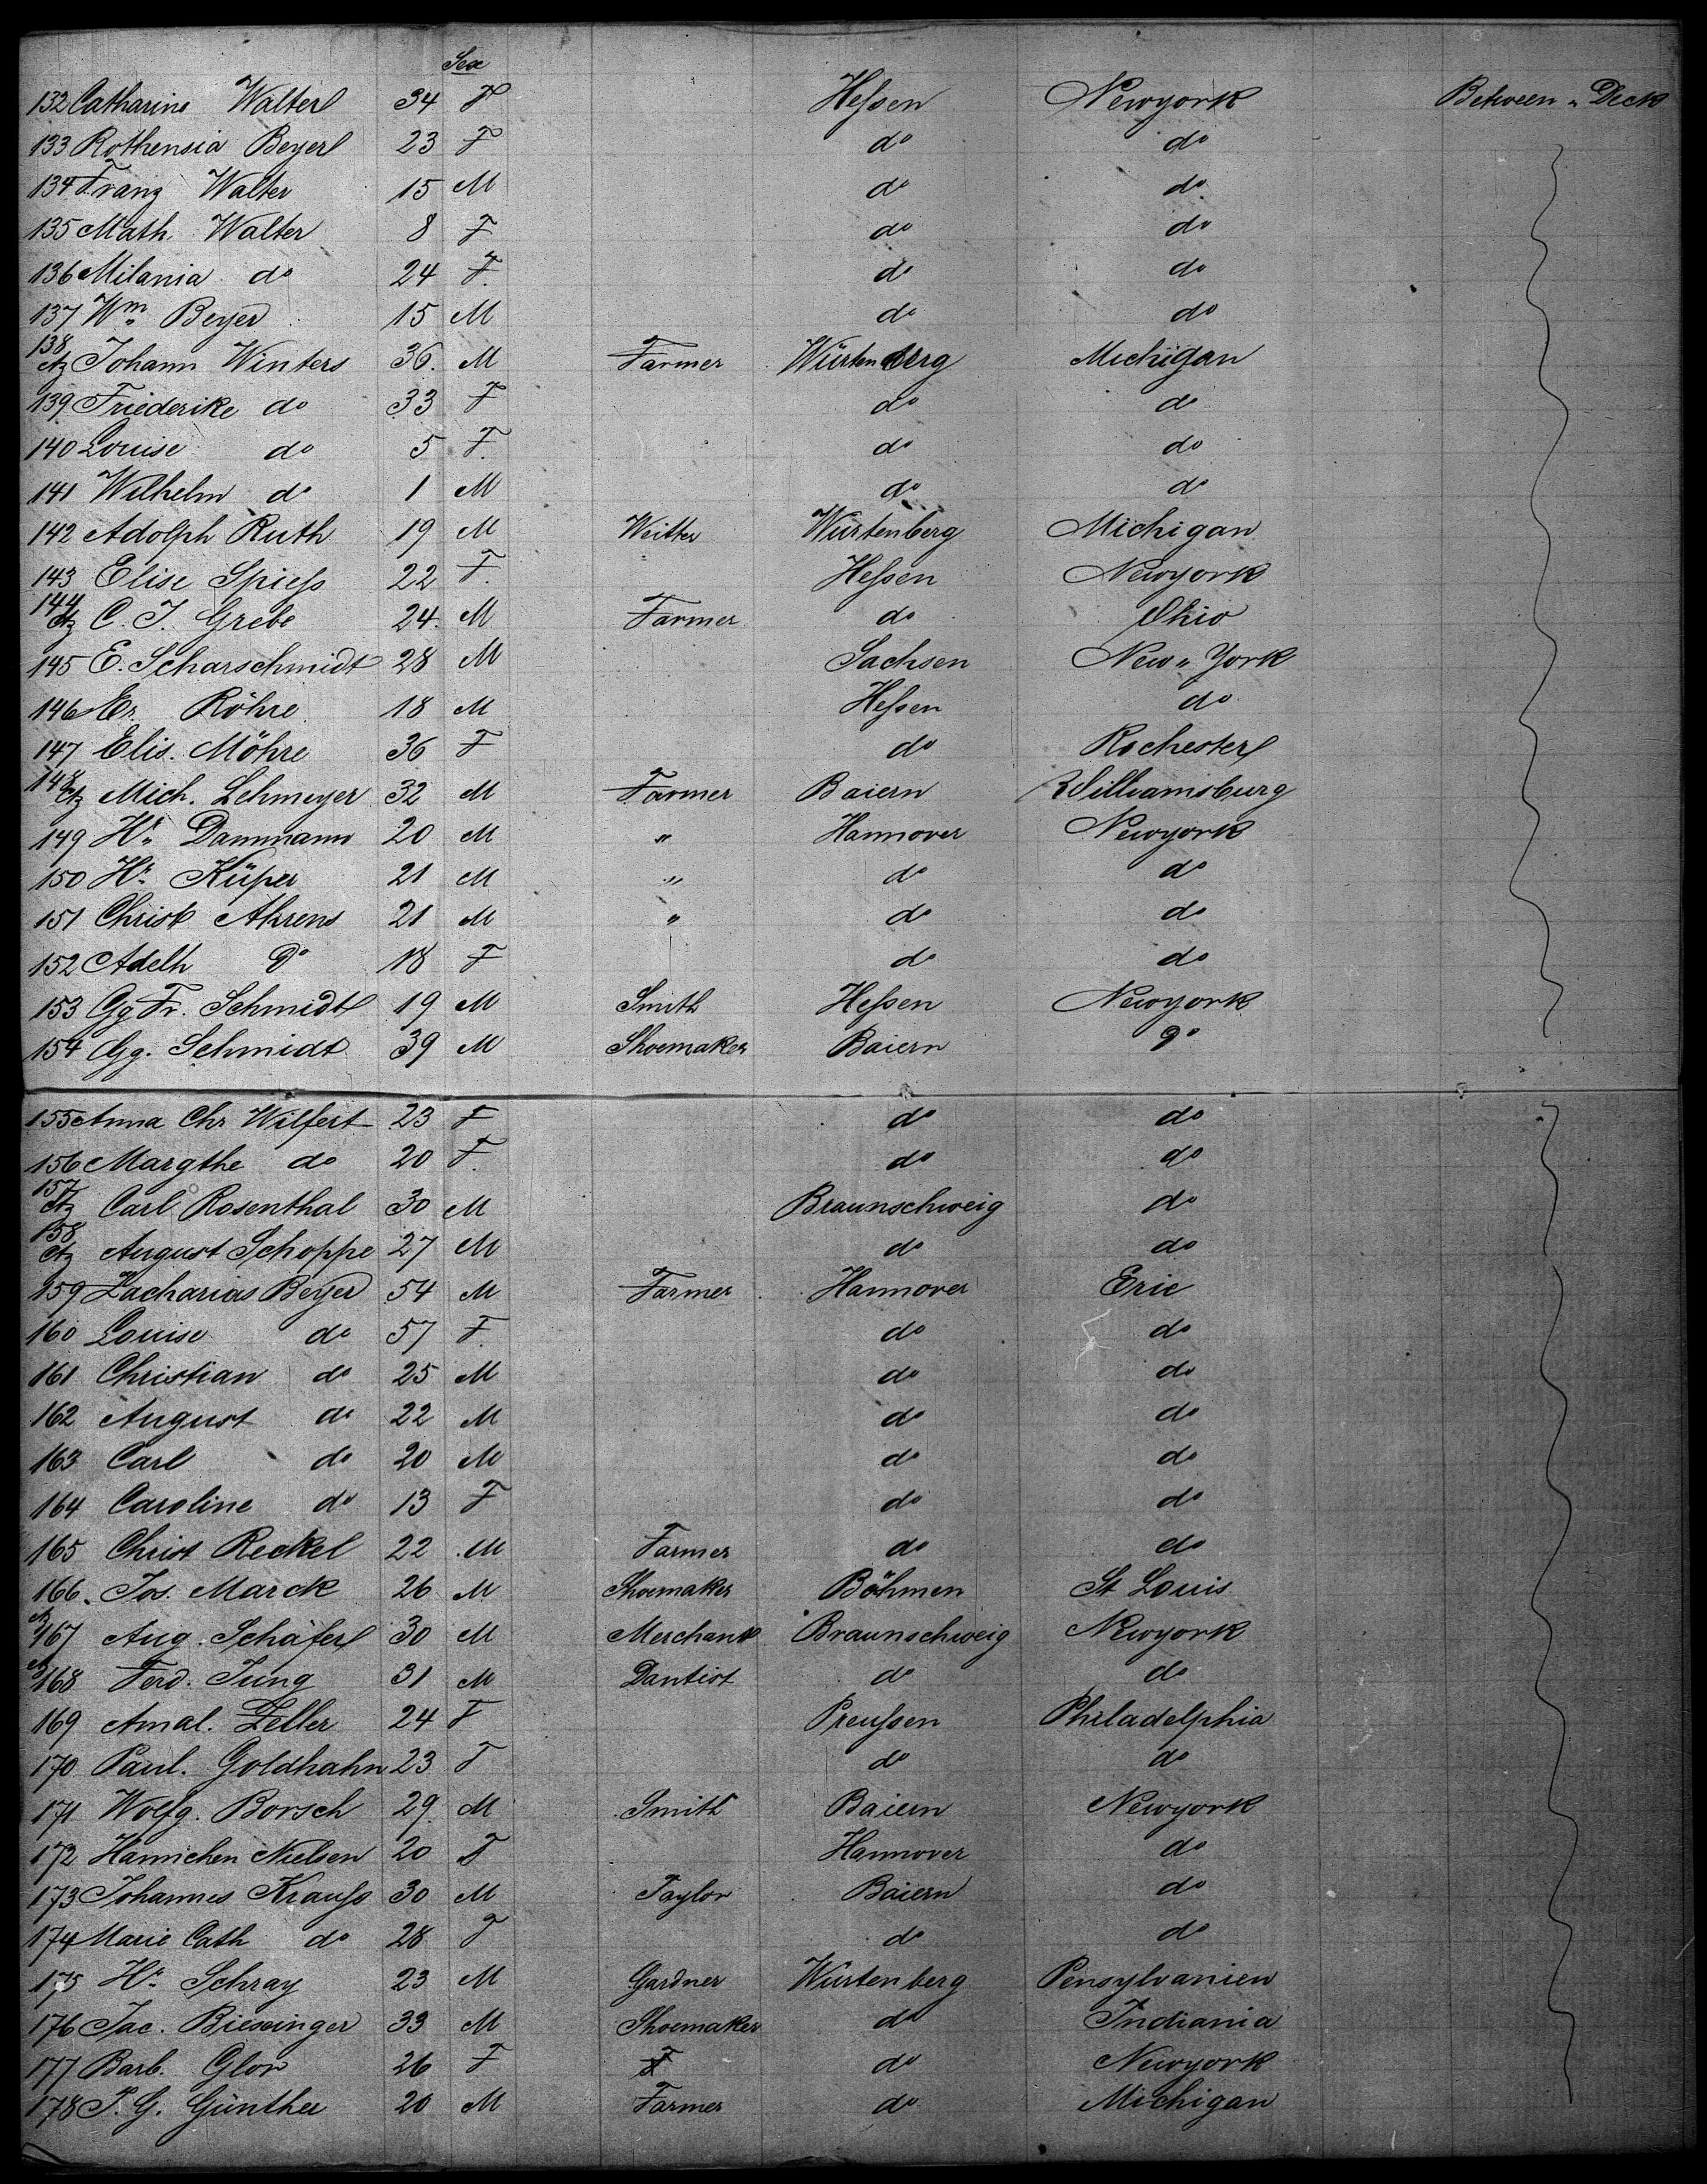 Sex
132 Catharine Walter 34 F Hessen Newyork Between „ Deck
133 Rothensia Beyer 23 F do do
134 Franz Walter 15 M do do
135 Math. Walter 8 F do do
136 Milania do 24 F. do do
137 Wm Beyer 15 M do do
138 Johann Winters 36. M Farmer Würtenberg Michigan
139 Friederike do 33 F do do
140 Louise do 5 F. do do
141 Wilhelm do 1 M do do
142 Adolph Ruth 19 M Würtenberg Michigan
143 Elise Spiess 22 F. Hessen Newyork
144 C. J. Grebe 24. M Farmer do Ohio
145 E. Scharschmidt 28 M Sachsen New„York
146 Er. Röhre 18 M Hessen do
147 Elis. Möhre 36 F do Rochester
148 Mich. Lehmeyer 32 M Farmer Baiern Williamsburg
149 Hr. Dammann 20 M " Hannover Newyork
150 Hr. Küper 21 M " do do
151 Christ Ahrens 21 M " do do
152 Adelh Do 18 F do do
153 Gg Fr. Schmidt 19 M Smith Hessen Newyork
154 Gg. Schmidt 39 M Shoemaker Baiern do
155 Anna Chr Wilfert 23 F do do
156 Margthe do 20 F. do do
157 Carl Rosenthal 30 M Braunschweig do
158 August Schoppe 27 M do do
159 Zacharias Beyer 54 M Farmer Hannover Erie
160 Louise do 57 F. do do
161 Christian do 25 M do do
162 August do 22 M do do
163 Carl do 20 M do do
164 Caroline do 13 F do do
165 Christ Reckel 22 M Farmer do do
166. Jos. Marck 26 M Shoemaker Böhmen St Louis
167 Aug. Schäfer 30 M Merchant Braunschweig Newyork
168 Ferd. Jung 31 M Dantist do do
169 Amal. Zeller 24 F Preussen Philadelphia
170 Paul. Goldhahn 23 F do do
171 Wolfg. Borsch 29. M Smith Baiern Newyork
172 Hannchen Nielsen 20 F Hannover do
173 Johannes Krauss 30 M Taylor Baiern do
174 Marie Cath do 28 F do do
175 Hr. Schray 23 M Gardner Würtenberg Pensylvanien
176 Jac. Biesinger 33 M Shoemaker do Indiania
177 Barb. Glor 26 F do Newyork
178 J. G. Günther 20 M Farmer do Michigan